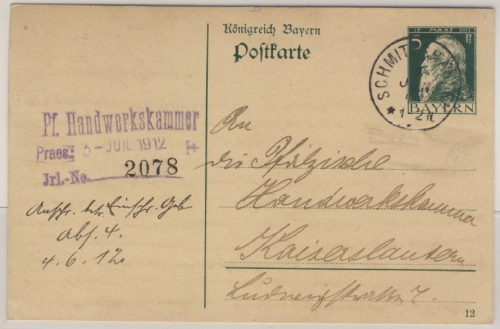 Königreich Bayern
Postkarte
12 MÄRZ 1911
5 Pf
BAYERN
SCHMIT
Pf. Handwerkskammer
Praes: 3-JUN. 1912
Jrl.-No. 2078
Abs. 4.
4.6.12
An
die Pfälzische
Handwerkskammer
Kaiserslautern
Ludwigstraße 7.
12